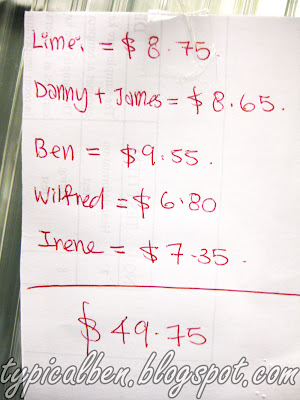 Limei = $8.75
Danny + James = $8.65.
Ben = $9.55.
Wilfred = $6.80
Irene = $7.35.
$49.75
typicalben.blogspot.com